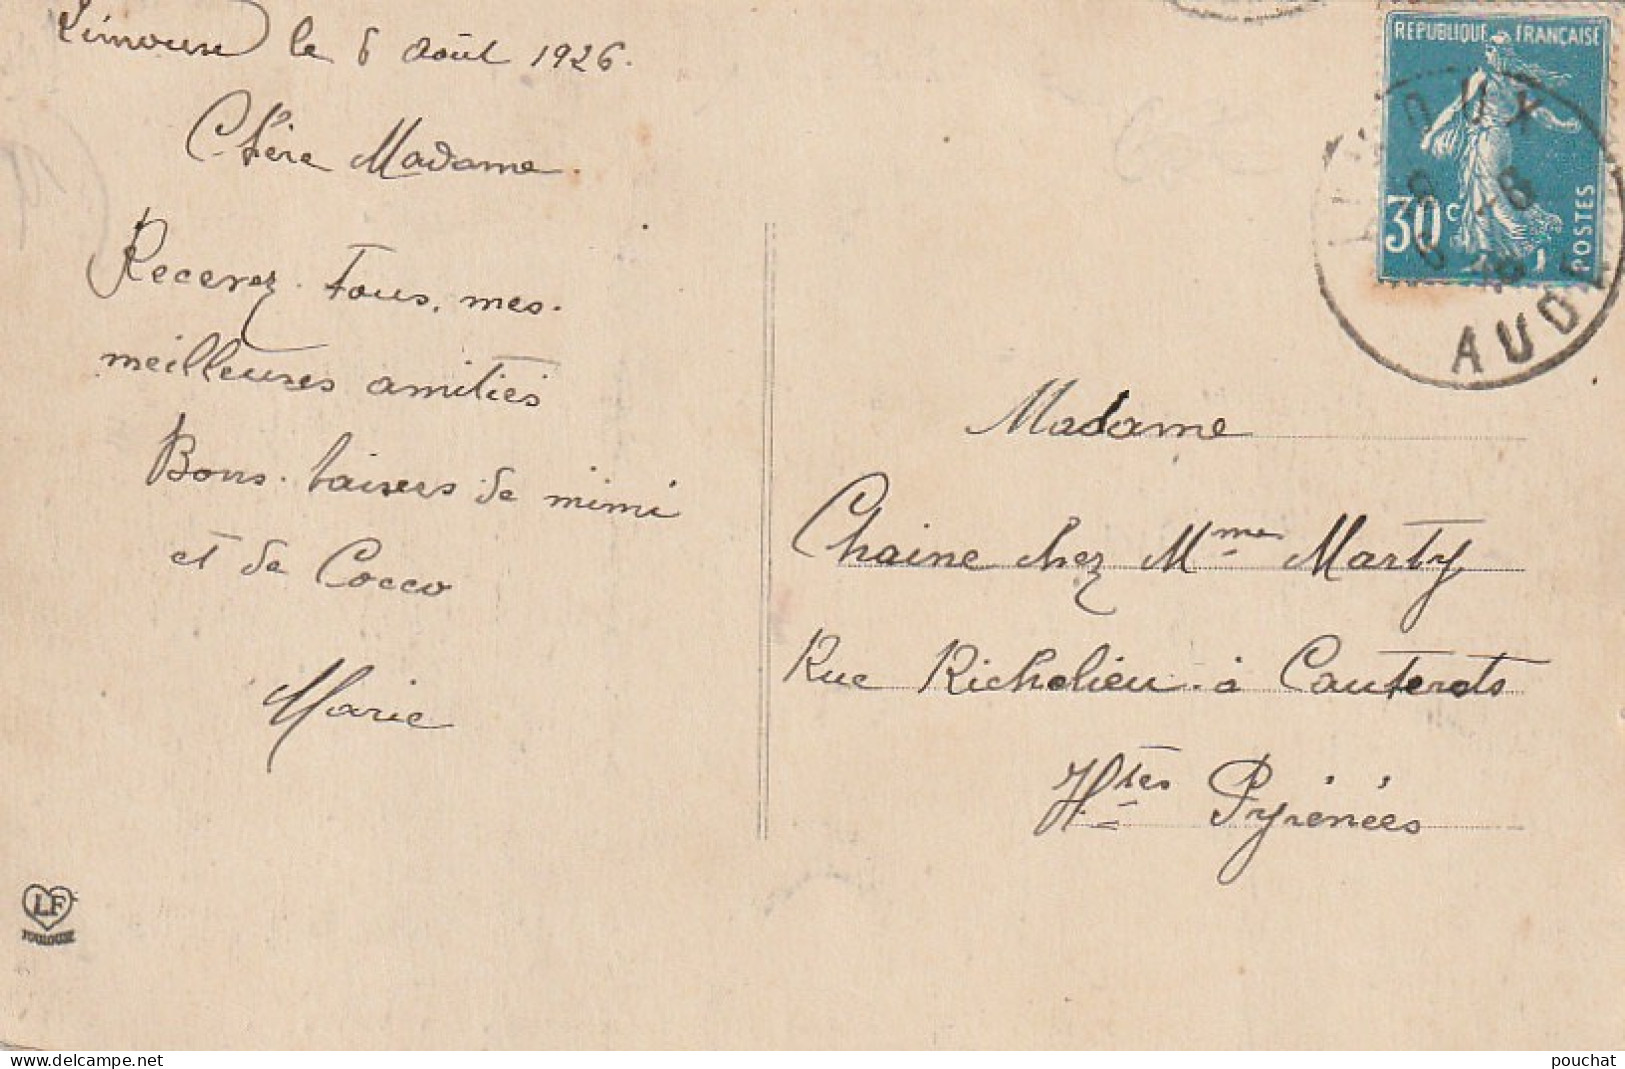 Limouse le 6 Août 1926.
Chère Madame
Recevez. Tous. mes.
meilleures amitiés
Bons. baisers de mimi
et de Cocco
Marie
RÉPUBLIQUE FRANÇAISE
30c
POSTES
AUDE
Madame
Chaine chez Mme Marty
Rue Richelieu. à Cauterets
Htes Pyrénées
LF
TOULOUSE
delcampe.net
pouchat